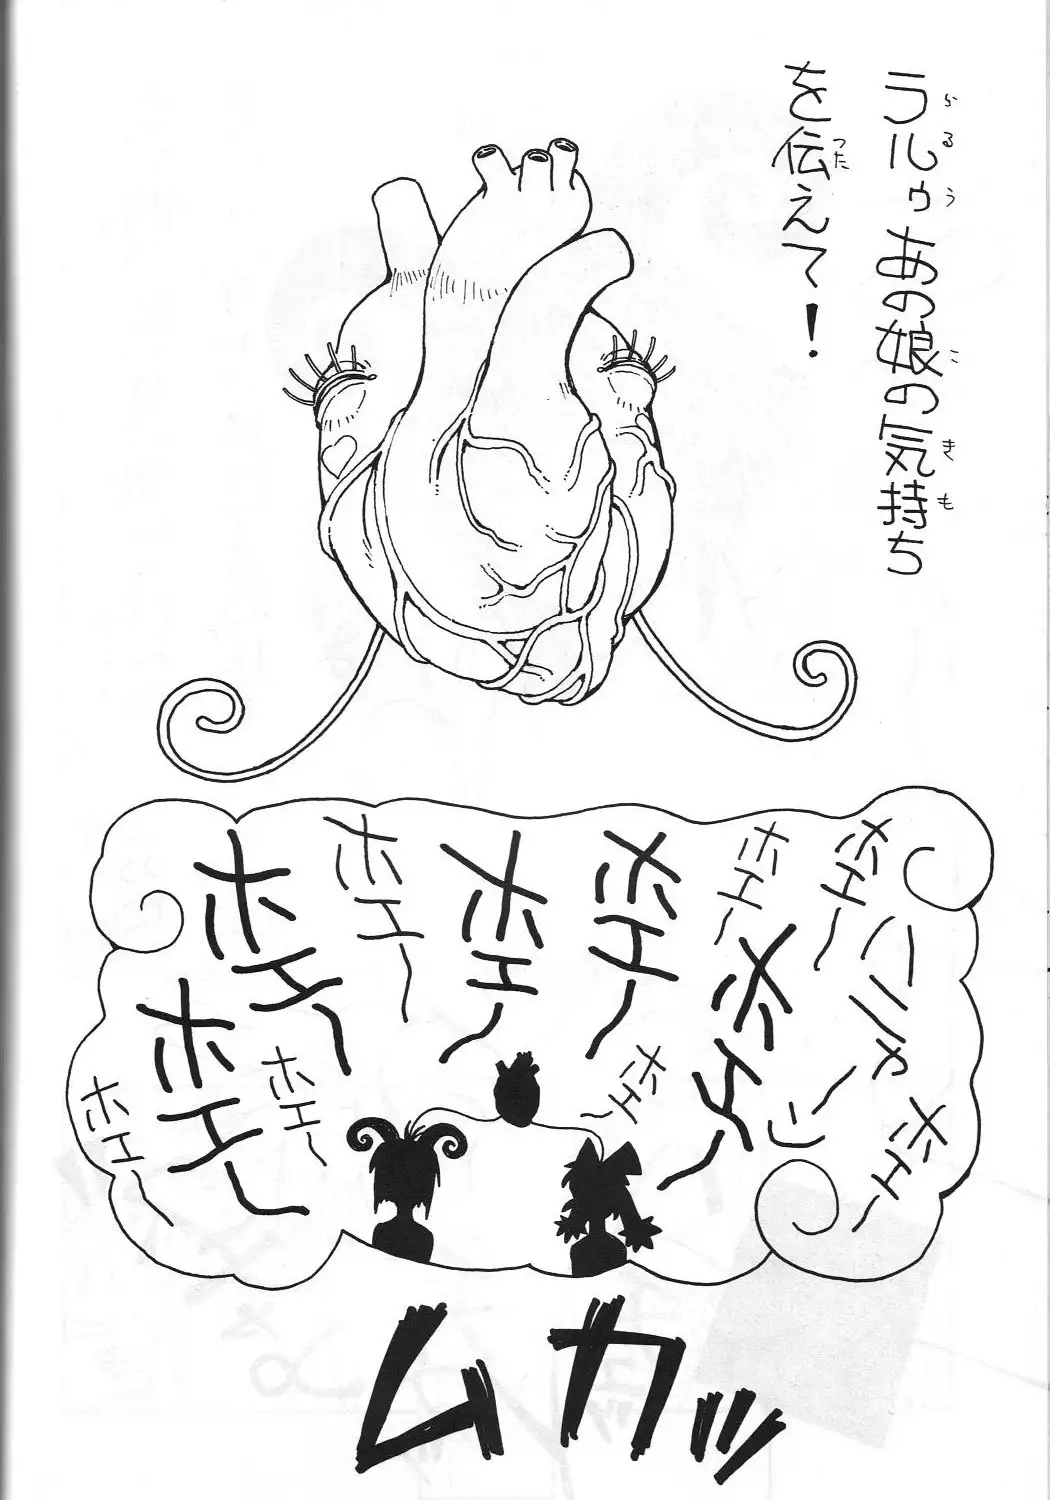 ラルゥあの娘の気持ち
を伝えて!
ホエ〜
ホエ〜
ハニャーン
ホエ〜
ホエ〜
ホエ〜
ホエ〜
ホエ〜
ホエ〜
ホエ〜
ホエ〜
ホエ〜
ホエ〜
ムカッ